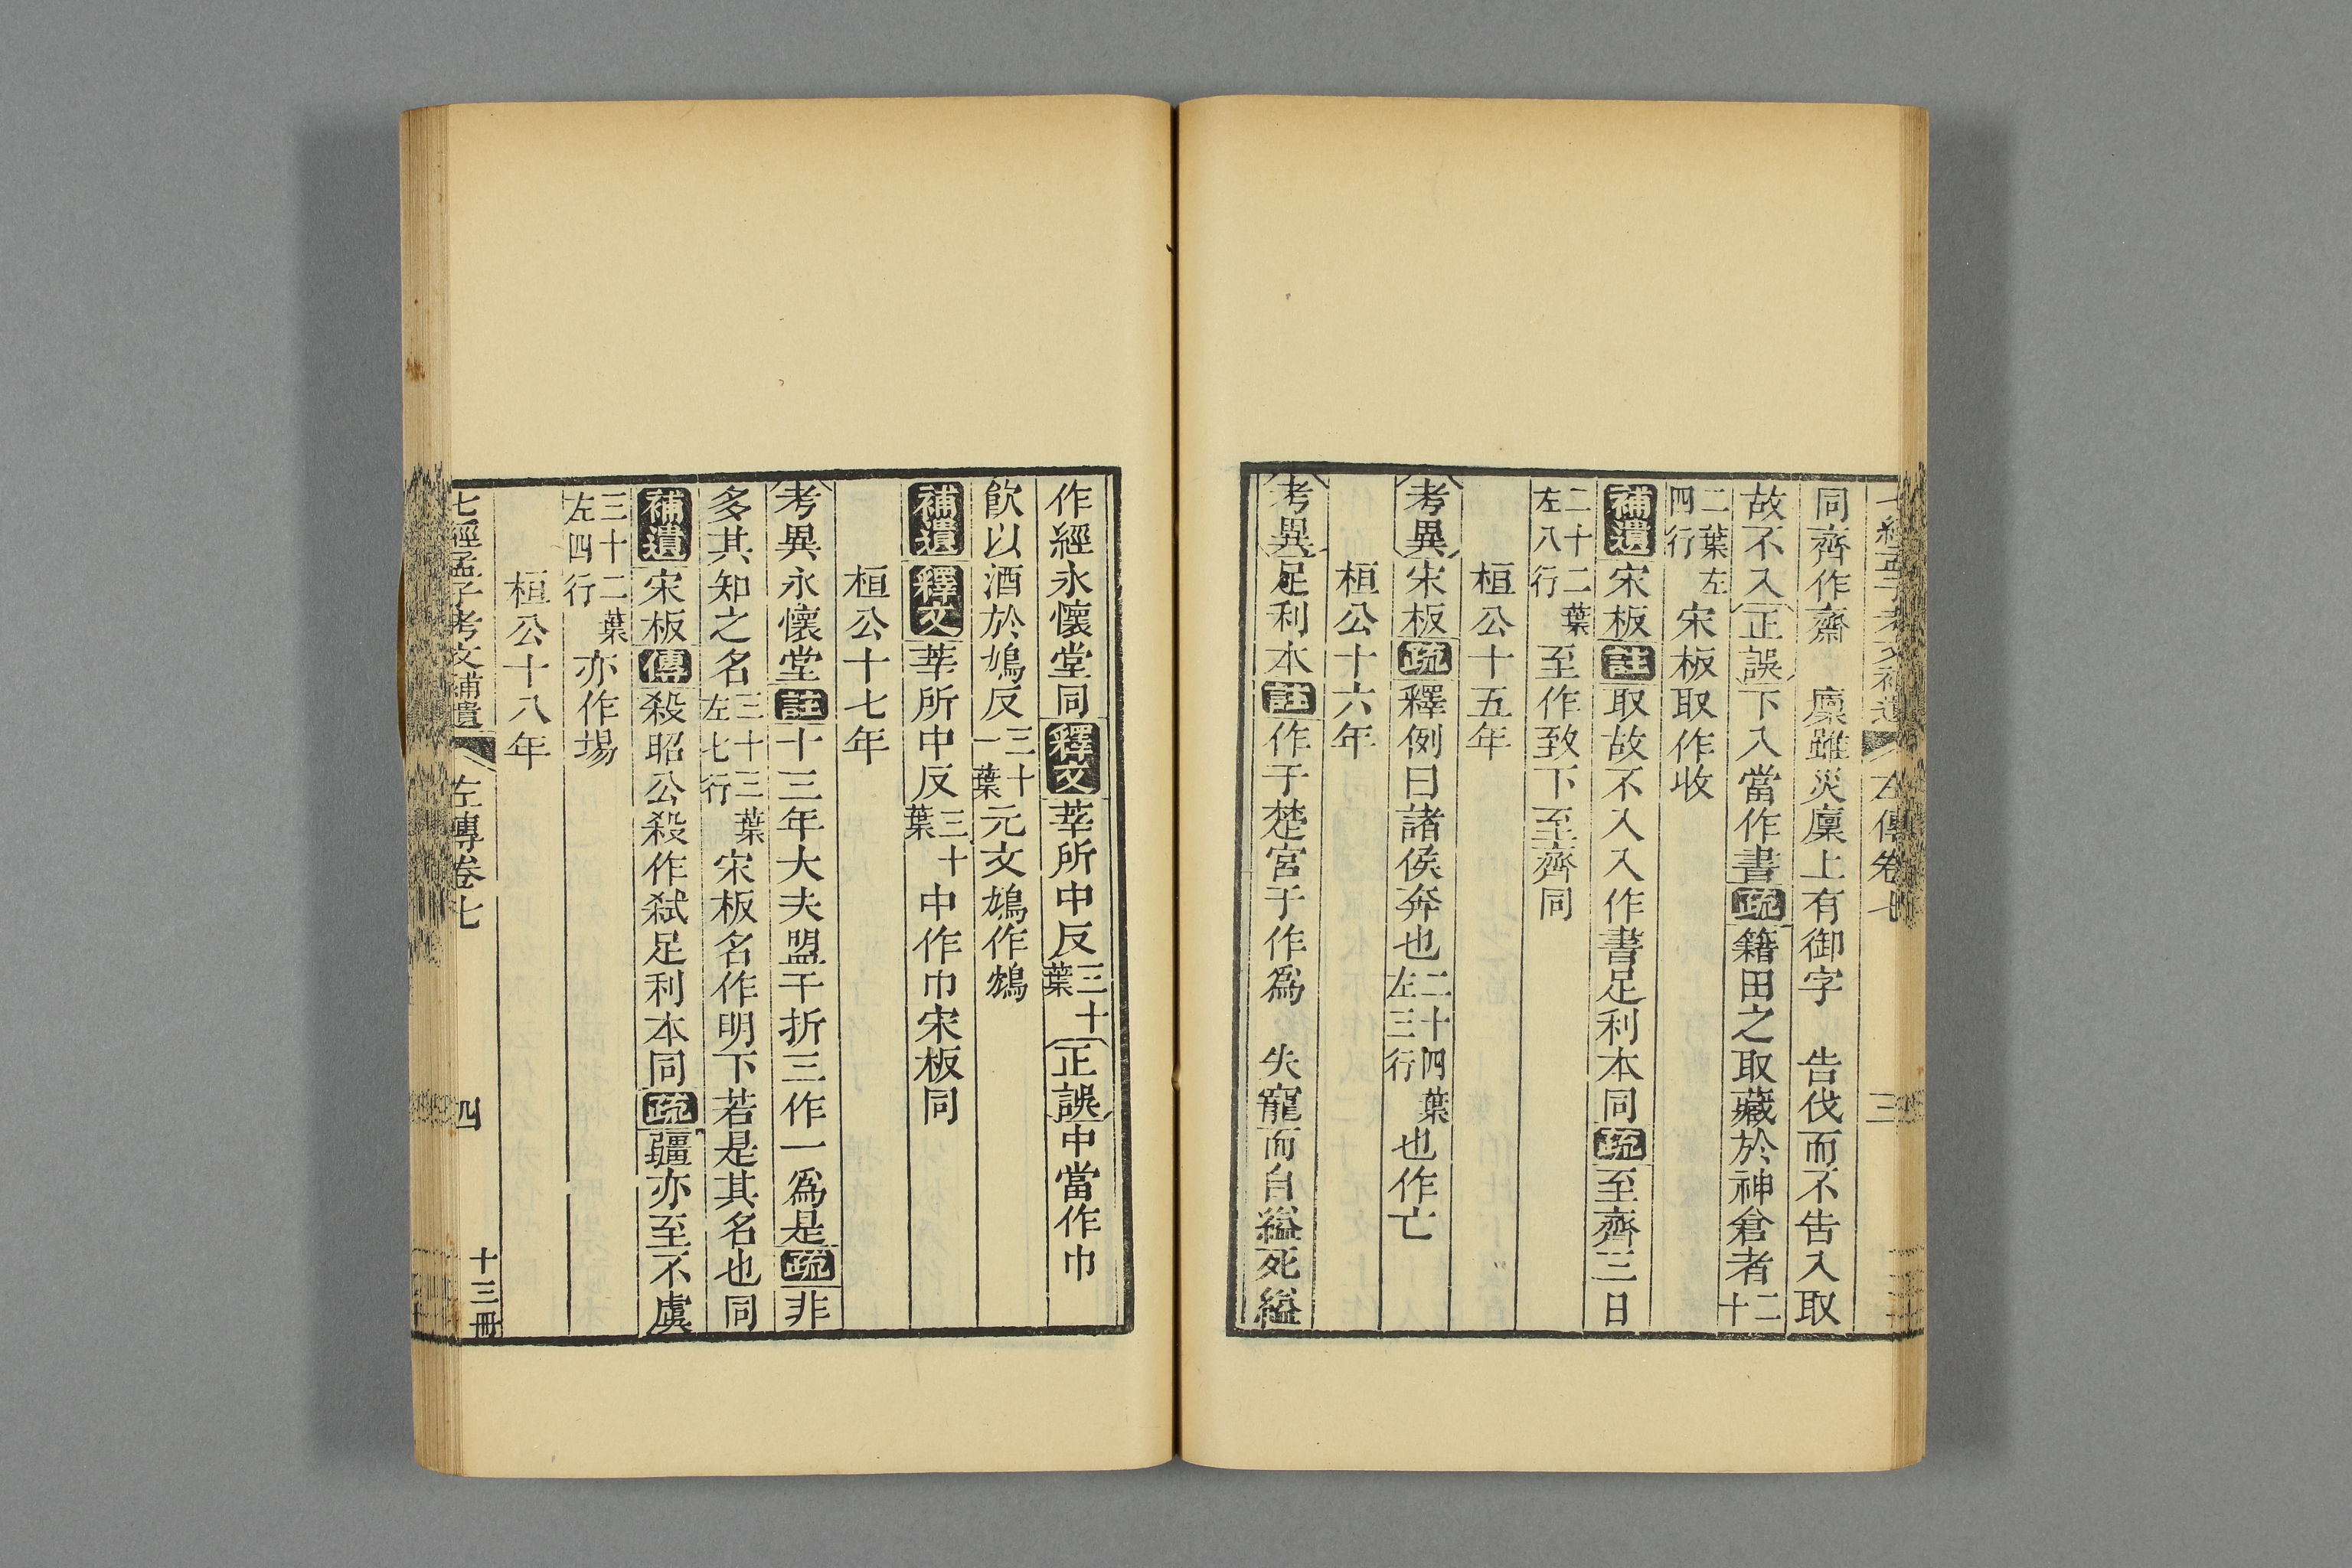 七經孟子考文補遺 左傳卷七 三
同齊作齋　廩雖災廩上有御字　告伐而不告入取
故不入正誤下入當作書疏籍田之取藏於神倉者二十
二葉左四行宋板取作收
補遺宋板註取故不入入作書足利本同疏至齊三日
二十二葉左八行至作致下至齊同
桓公十五年
考異宋板疏釋例曰諸侯奔也二十四葉左三行也作亡
桓公十六年
考異足利本註作于楚宮于作爲　失寵而自縊死縊
作經永懷堂同釋文莘所中反三十葉正誤中當作巾
飮以酒於鴆反三十一葉元文鴆作鴆
補遺釋文莘所中反三十葉中作巾宋板同
桓公十七年
考異永懷堂註十三年大夫盟于折三作一爲是疏非
多其知之名三十三葉左七行宋板名作明下若是其名也同
補遺宋板傳殺昭公殺作弑足利本同疏疆亦至不虞
三十二葉左四行亦作場
桓公十八年
七經孟子考文補遺 左傳卷七 四 十三冊